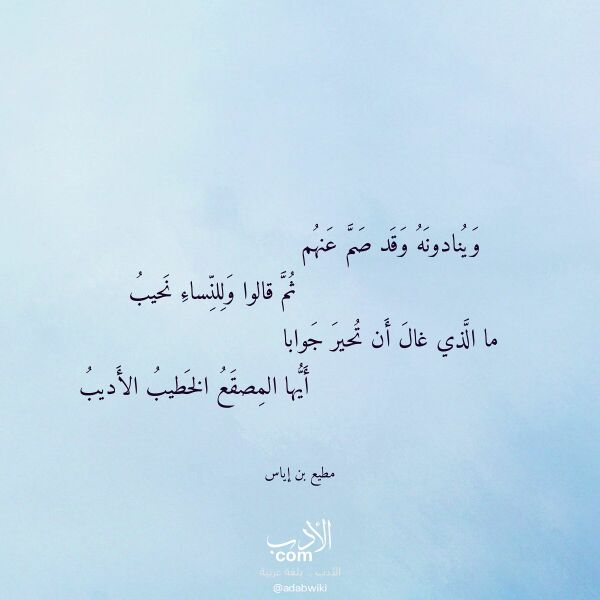 وَيُنادونَهُ وَقَد صَمَّ عَنهُم
ثُمَّ قالوا وَلِلنِّساءِ نَحيبُ
ما الَّذي غالَ أَن تُحيرَ جَوابا
أَيُّها المِصقَعُ الخَطيبُ الأَديبُ
مطيع بن إياس
الأدب
com
الأدب .. بلغة عربية
@adabwiki